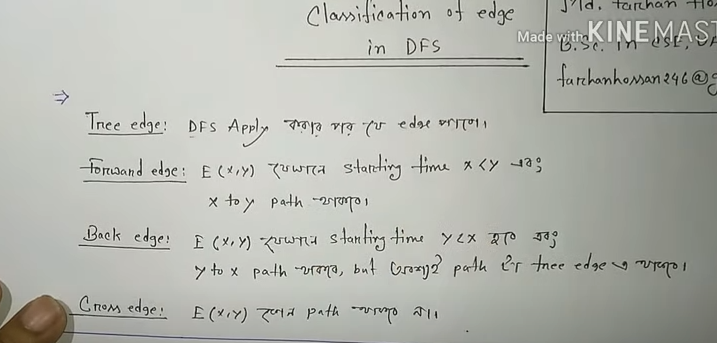 Classification of edge
in DFS
Md. Farhan
Made with KINEMAST
B.Sc. in CSE,
farhanhossan246@g
⇒
Tree edge: DFS Apply করার পর যে edge থাকে।
Forward edge: E(x,y) যেখানে starting time x<y এবং
x to y path থাকবে।
Back edge: E(x,y) যেখানে starting time y<x হবে এবং
y to x path থাকবে, but path টা tree edge এ থাকবে।
Cross edge: E(x,y) কোন path থাকবে না।